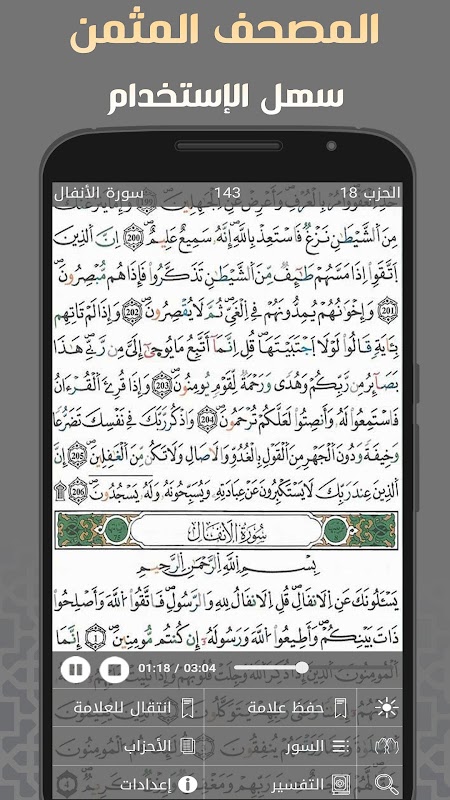 المصحف المثمن
سهل الإستخدام
الحزب 18 143 سورة الأنفال
مِنَ الشَّيْطَٰنِ نَزْغٌ فَاسْتَعِذْ بِاللَّهِ إِنَّهُ سَمِيعٌ عَلِيمٌ 200 إِنَّ الَّذِينَ
اَتَّقَوِاْ اِذَا مَسَّهُمْ طَٰٓئِفٌ مِّنَ الشَّيْطَٰنِ تَذَكَّرُواْ فَإِذَا هُم مُّبْصِرُونَ
201 وَإِخْوَٰنُهُمْ يُمِدُّونَهُمْ فِي الْغَيِّ ثُمَّ لَا يُقْصِرُونَ 202 وَإِذَا لَمْ تَاتِهِم
بِـَٔايَةٖ قَالُواْ لَوْلَا اَجْتَبَيْتَهَا قُلِ اِنَّمَآ أَتَّبِعُ مَا يُوحَىٰٓ إِلَيَّ مِن رَّبِّي هَٰذَا
بَصَآئِرُ مِن رَّبِّكُمْ وَهُدىٗ وَرَحْمَةٞ لِّقَوْمٖ يُومِنُونَ 203 وَإِذَا قُرِئَ الْقُرْءَانُ
فَاسْتَمِعُواْ لَهُ وَأَنصِتُواْ لَعَلَّكُمْ تُرْحَمُونَ 204 وَاذْكُر رَّبَّكَ فِي نَفْسِكَ تَضَرُّعاٗ
وَخِيفَةٗ وَدُونَ الْجَهْرِ مِنَ الْقَوْلِ بِالْغُدُوِّ وَالَاصَالِ وَلَا تَكُن مِّنَ الْغَٰفِلِينَ 205 إِنَّ
الَّذِينَ عِندَ رَبِّكَ لَا يَسْتَكْبِرُونَ عَنْ عِبَادَتِهِ وَيُسَبِّحُونَهُ وَلَهُ يَسْجُدُونَ 206
سُورَةُ الْأَنفَالِ
بِسْمِ اللَّهِ الرَّحْمَٰنِ الرَّحِيمِ
يَسْـَٔلُونَكَ عَنِ الَانفَالِ قُلِ الَانفَالُ لِلهِ وَالرَّسُولِ فَاتَّقُواْ اللَّهَ وَأَصْلِحُواْ
ذَاتَ بَيْنِكُمْ وَأَطِيعُواْ اللَّهَ وَرَسُولَهُ إِن كُنتُم مُّومِنِينَ 1 إِنَّمَا
01:18 / 03:04
حفظ علامة انتقال للعلامة
السور الأحزاب
التفسير إعدادات